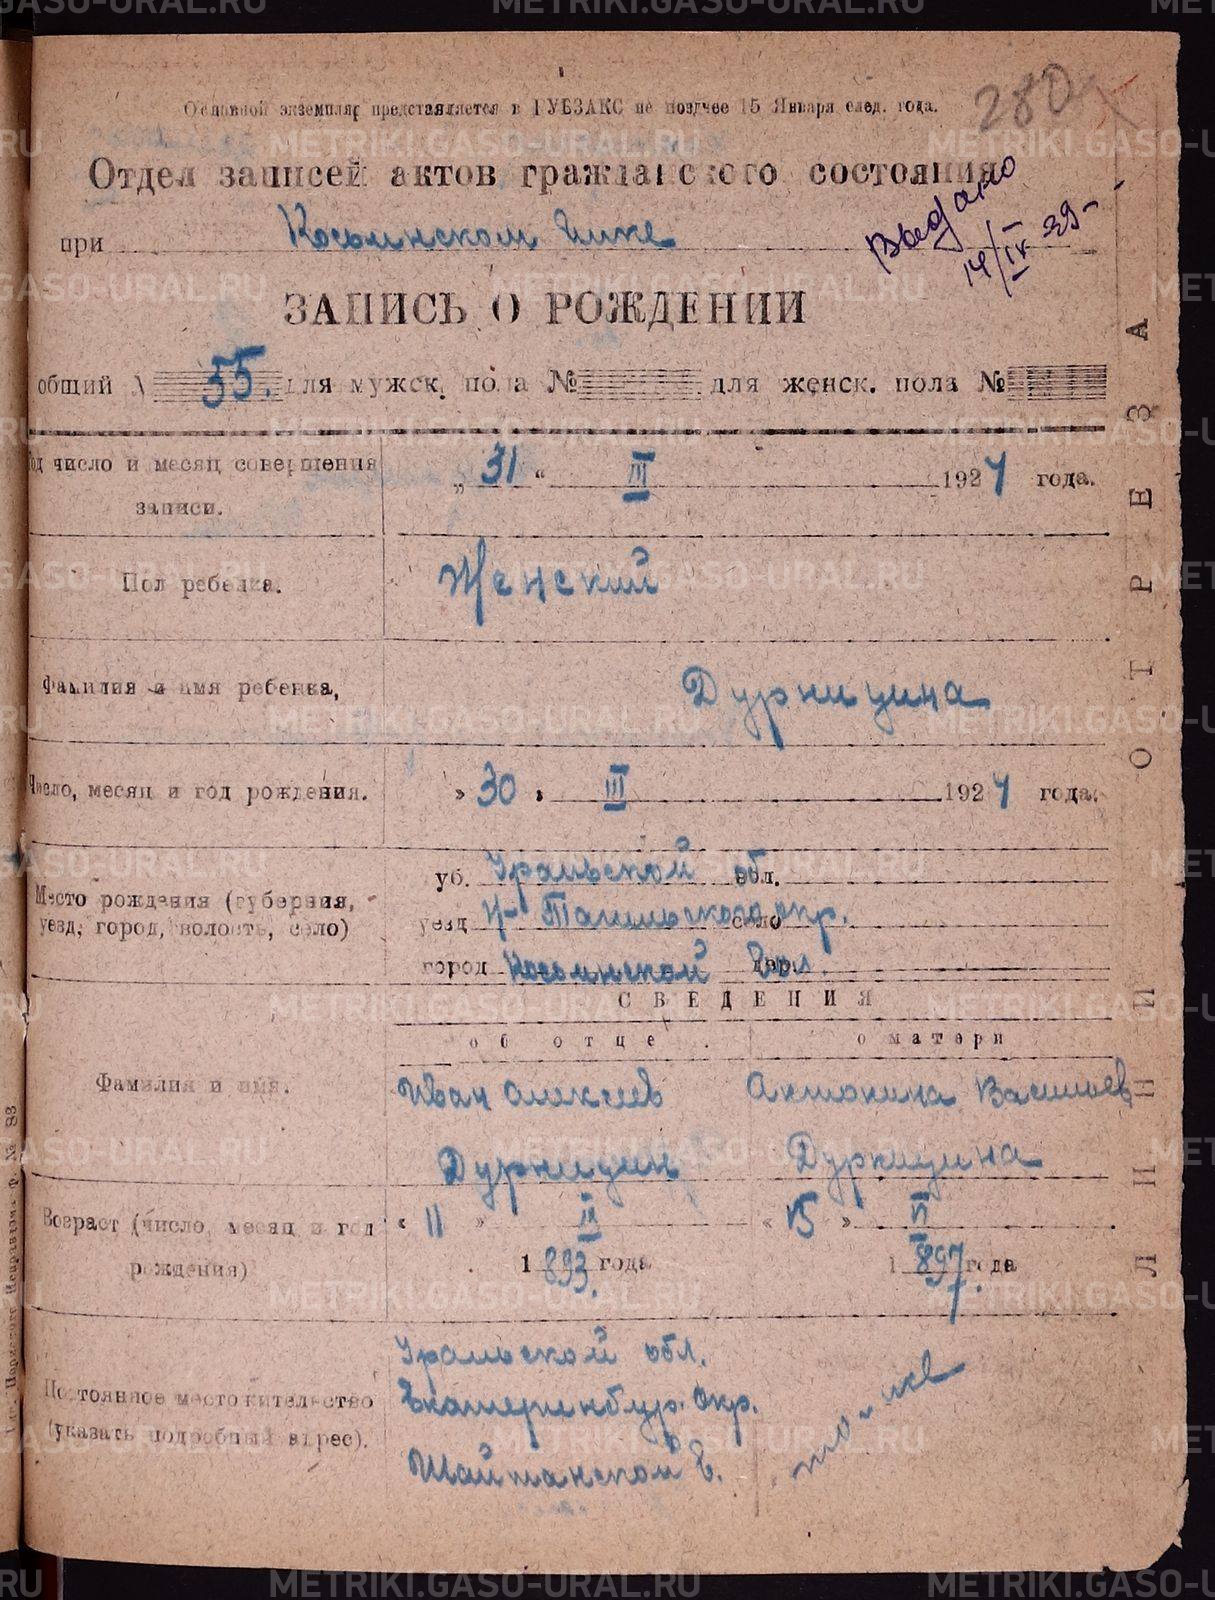 280
Основной экземпляр представляется в ГУБЗАКС не позднее 15 Января след. года.
Отдел записей актов гражданского состояния
при Косьинском
Выдано
14/IV 39
ЗАПИСЬ О РОЖДЕНИИ
общий № 55. для мужск. пола № для женск. пола №
Год число и месяц совершения записи.
„ 31 “ III 1924 года.
Пол ребенка.
Женский
Фамилия и имя ребенка,
Дурницина
Число, месяц и год рождения.
» 30 » III 1924 года.
Место рождения (губерния, уезд, город, волость, село)
уб. Уральской обл.
уезд Н-Тагильского село окр.
город Косьинской дер.
СВЕДЕНИЯ
об отце. о матери
Фамилия и имя.
Иван Алексеев Антонина Васильев
Дурницин Дурницина
Возраст (число, месяц и год рождения)
« 11 » IX « 15 » VI
1893. года 1897. года
Постоянное местожительство (указать подробный адрес).
Уральской обл.
Екатеринбур. окр.
Шайтанской в.
то-же
ЛИНИЯ ОТРЕЗА
METRIKI.GASO-URAL.RU